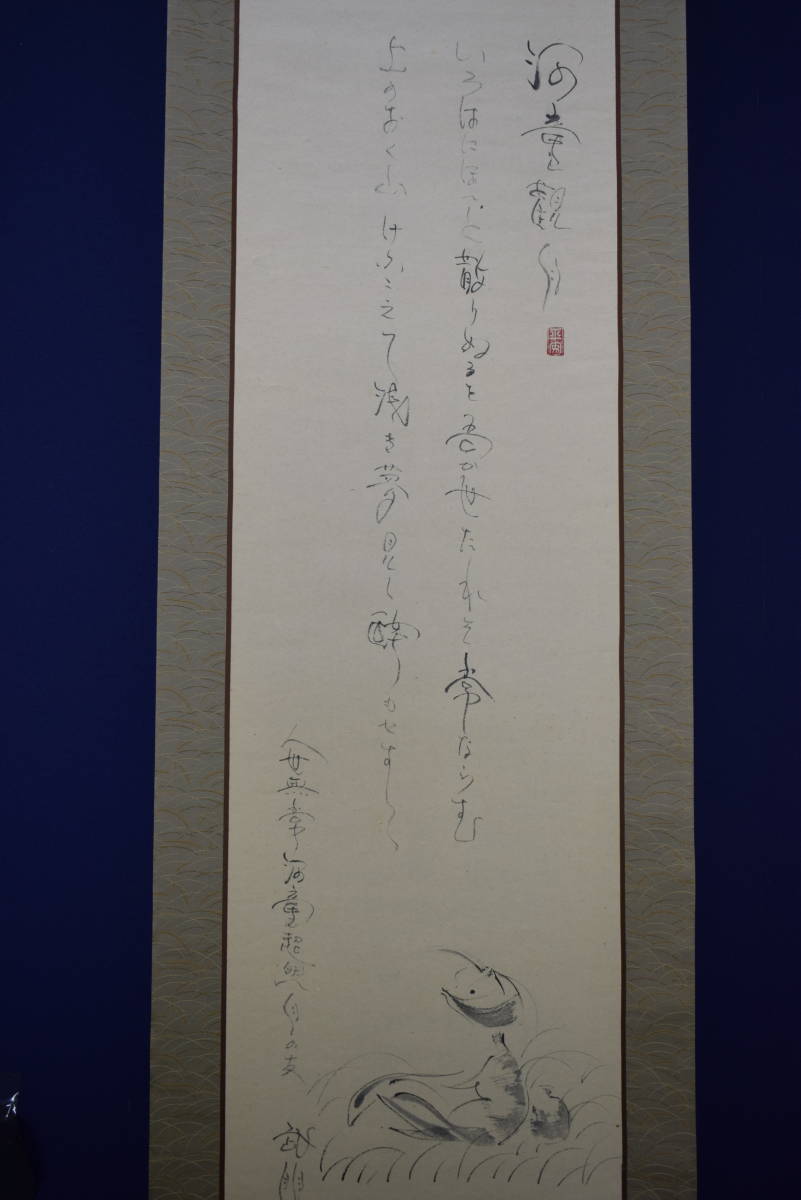 河童観月
いろはにほへと散りぬるを吾が世たれそ常ならむ
のおく山けふこえて浅き夢見し酔もせす
人世無常河童月の友